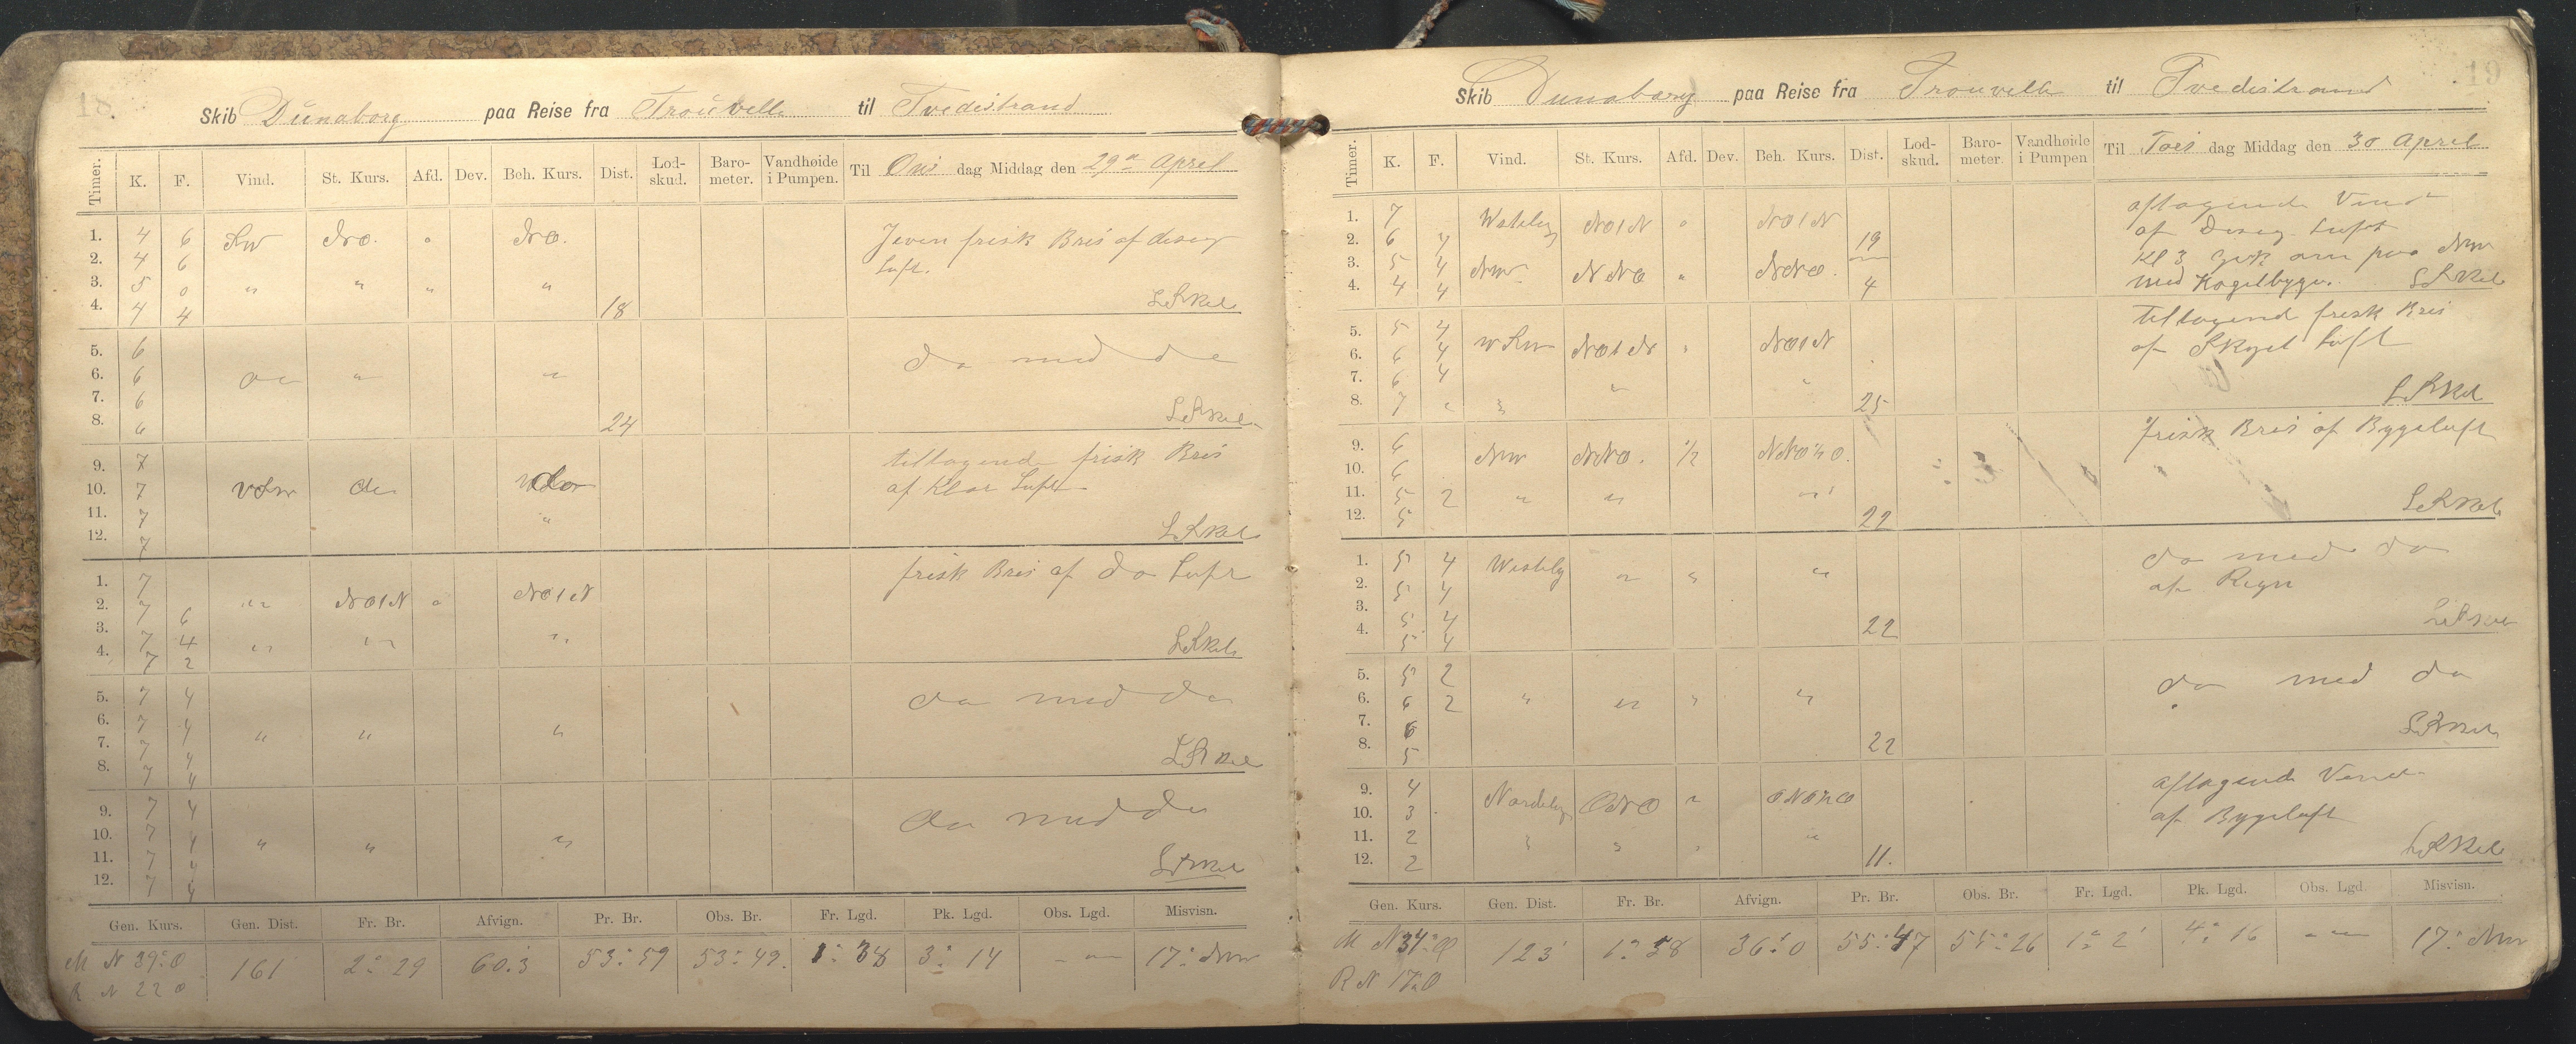 18.
Skib Dünaborg paa Reise fra Trouville til Tvedestrand
Timer. K. F. Vind. St. Kurs. Afd. Dev. Beh. Kurs. Dist. Lod-skud. Baro-meter. Vandhøide i Pumpen. Til Ons dag Middag den 29de April
1. 4 6 SW NO. " NO. Jeven frisk Bris af diseg
2. 4 6 Luft.
3. 5 0 " " " "
4. 4 4 18
5. 6 do med do
6. 6 do " "
7. 6
8. 6 24
9. 7 tiltagende frisk Bris
10. 7 VSW do do af klar Luft
11. 7 "
12. 7
1. 7 frisk Bris af do Luft
2. 7 6 " NOtN " NOtN
3. 7 4 " " "
4. 7 2
5. 7 4 do med do
6. 7 4 " " "
7. 7 4
8. 7 4
9. 7 4 do med do
10. 7 4 " " "
11. 7 4
12. 7 4
Gen. Kurs. Gen. Dist. Fr. Br. Afvign. Pr. Br. Obs. Br. Fr. Lgd. Pk. Lgd. Obs. Lgd. Misvisn.
M N 39° O 161 2° 29 60.3 53° 59 53° 49. 1° 38 3° 14 17° NW
R N 22 O
19
Skib Dunaborg paa Reise fra Trouville til Tvedestrand
Timer. K. F. Vind. St. Kurs. Afd. Dev. Beh. Kurs. Dist. Lod-skud. Baro-meter. Vandhøide i Pumpen Til Tors dag Middag den 30 April
1. 7 Westelig NOtN " NOtN aftagende Vind
2. 6 4 19 af Diseg Luft
3. 5 4 NW NNO " NNO. kl 3 gik om paa NW
4. 4 4 4 med Kagelbyger.
5. 5 4 WSW NOtN " NOtN tiltagend frisk Bris
6. 6 4 af Skyet Luft
7. 6 4 " "
8. 7 " " 25
9. 6 NW NNO. 1/2 NNO½O. frisk Bris af Bygeluft
10. 6
11. 5 2 " " "
12. 5 22
1. 5 4 Westelig " " " do med do
2. 5 4 af Regn
3. 5 4
4. 5 4 22
5. 5 2 do med do
6. 6 2 " " " "
7. 6
8. 5 22
9. 4 Nordelig ONO " ONO½O aftagende Vind
10. 3 af Bygeluft
11. 2 " " " "
12. 2 11.
Gen. Kurs. Gen. Dist. Fr. Br. Afvign. Pr. Br. Obs. Br. Fr. Lgd. Pk. Lgd. Obs. Lgd. Misvisn.
M N 34° O 123 1° 38 36'0 55° 47 55° 26 1° 2' 4° 16 17° NW
R N 17° O